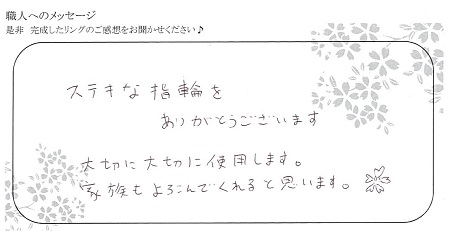 職人へのメッセージ
是非　完成したリングのご感想をお聞かせください♪
ステキな指輪を
ありがとうございます
大切に大切に使用します。
家族もよろこんでくれると思います。